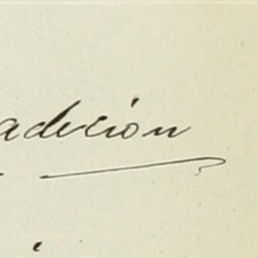 adición